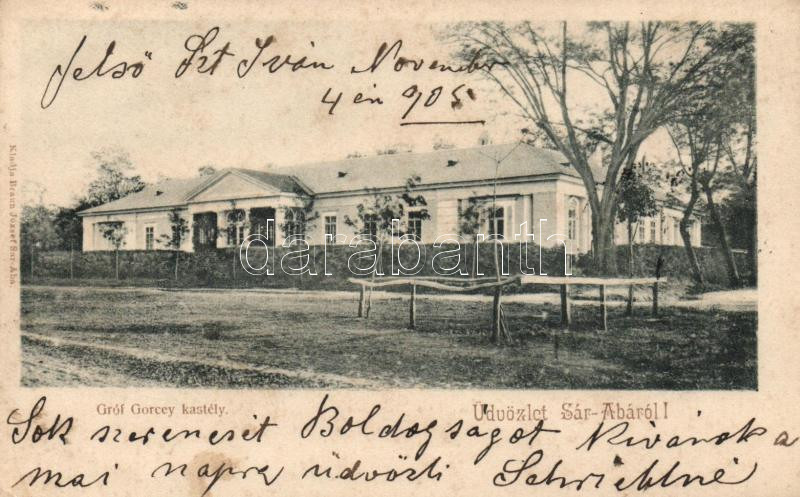 felső Szt Iván November
4 én 905
Kiadja Braun József Sár-Aba.
darabanth
Gróf Gorcey kastély.
Üdvözlet Sár-Abáról!
Sok szerencsét Boldogságot Kivánok a
mai napra üdvözli